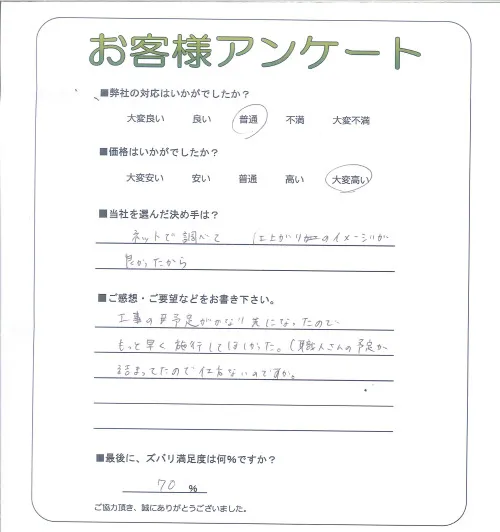 お客様アンケート
■弊社の対応はいかがでしたか？
大変良い 良い 普通 不満 大変不満
■価格はいかがでしたか？
大変安い 安い 普通 高い 大変高い
■当社を選んだ決め手は？
ネットで調べて 仕上がりのイメージが
良かったから
■ご感想・ご要望などをお書き下さい。
工事の予定がかなり先になったので
もっと早く施行してほしかった。（職人さんの予定が
詰まってたので仕方ないのですが。
■最後に、ズバリ満足度は何％ですか？
70 ％
ご協力頂き、誠にありがとうございました。